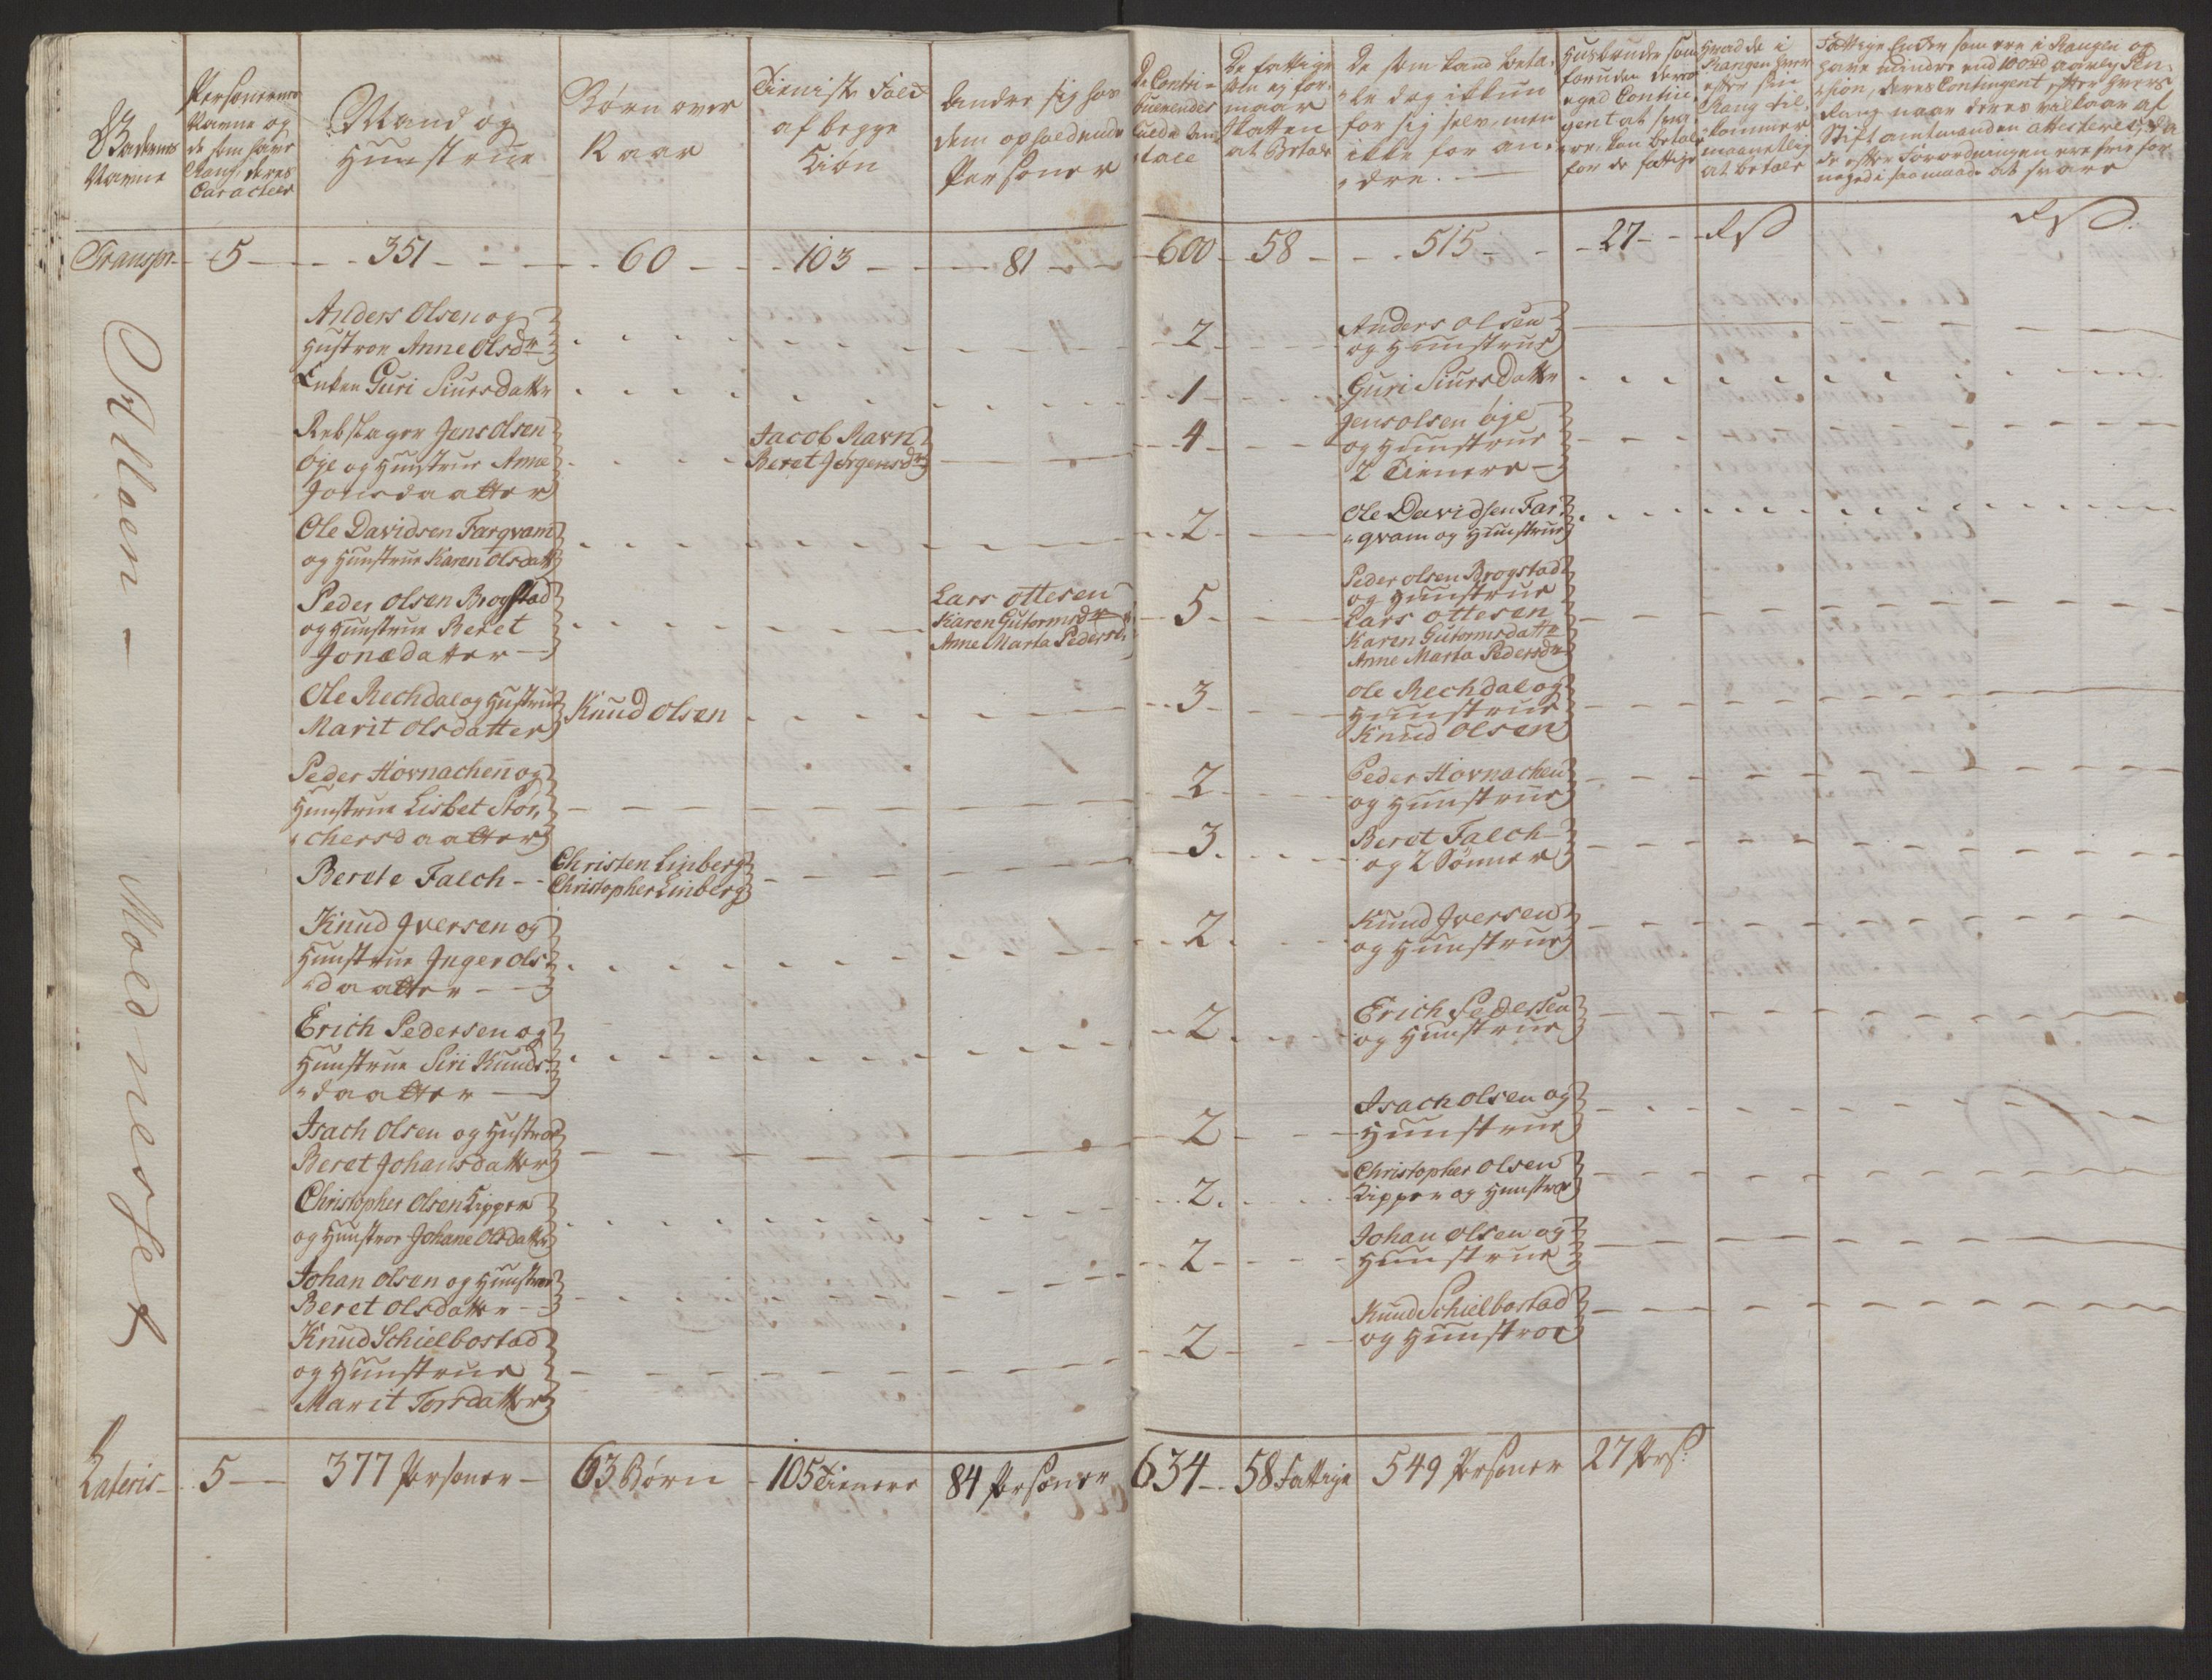 Gadernes
Navne
Personernes
Navne og
de som have
Rang, deres
Caracteer
Mand og
Hunstrue
Børn over
12 aar
Tieniste Folk
af begge
Kiøn
Andre sig hos
dem opholdende
Personer
De Contri-
buerendes
fulde An-
tall
De fattige
som ej for-
maar
Skatten
at Betale
De som kand beta-
le dog ikkun
for sig selv, men
ikke for an-
dre.
Husbonde som
foruden deres
eged Contin-
gent at sva-
re, kan betale
for de fattige
Hvad de i
Rangen hver
efter sin
Rang til-
kommer
maanetlig
at betale
Fattige Enker som ere i Rangen og
have mindre end 100 rd aarlig Pen-
sion, deres Contingent efter hvers
Rang naar deres vilkaar af
Stiftamtmanden attesteres, da
de efter Forordningen ere frie for
noged i saa maade at svare
Transpr 5 351 60 103 81 600 58 515 27
Molden-
Moldenesset
Anders Olsen og
Hustroe Anne Olsdr
2
Anders Olsen
og Hunstrue
Enken Guri Siursdatter
1
Guri Siursdatter
Rebslager Jens Olsen
Øje og Hunstrue Anne
Jonsdaatter
Jacob Ravn
Beret Jørgensdr
4
Jens olsen øje
og Hunstrue
2 Tienere
Ole Davidsen Farqvam
og Hunstrue Karen Olsdatt
2
Ole Davidsen Far-
qvam og Hunstrue
Peder Olsen Brogstad
og Hunstrue Beret
Jonædatter
Lars Ottesen
Karen Gutormsdr
Anne Marta Pedersdr
5
Peder Olsen Brogstad
og Hunstrue
Lars Ottesen
Karen Gutormsdattr
Anne Marta Pedersdr
Ole Rechdal og Hustrue
Marit Olsdatter
Knud Olsen
3
Ole Rechdal og
Hunstrue
Knud Olsen
Peder Hovnachen og
Hunstrue Lisbet Stør-
chersdaatter
2
Peder Hovnachen
og Hunstrue
Berete Falch
Christen Linberg
Christopher Linberg
3
Beret Falch
og 2 Sønner
Knud Iversen og
Hunstrue Inger Ols-
daatter
2
Knud Iversen
og Hunstrue
Erich Pedersen og
Hunstrue Siri Knuds-
daatter
2
Erich Pedersen
og Hunstrue
Isach Olsen og Hustroe
Beret Johansdatter
2
Isach Olsen og
Hunstrue
Christopher Olsen Kipper
og Hunstroe Johane Olsdatter
2
Christopher Olsen
Kipper og Hunstroe
Johan Olsen og Hunstroe
Beret Olsdatter
2
Johan Olsen og
Hunstrue
Knud Schielbostad
og Hunstrue
Marit Torsdatter
2
Knud Schielbostad
og Hunstroe
Lateris 5 377 Personer 63 Børn 105 Tienere 84 Personer 634 58 Fattige 549 Personer 27 Pers: